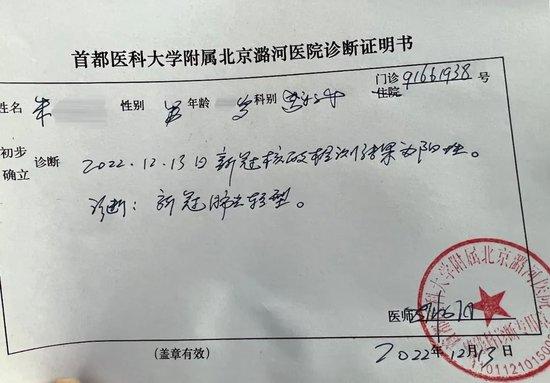 首都医科大学附属北京潞河医院诊断证明书
门诊 91661938 号
住院
姓名 朱 性别 男 年龄 岁 科别
初步 诊断 2022.12.13日新冠核酸检测结果为阳性。
确立
诊断：新冠肺炎轻型。
医师
(盖章有效) 2022年12月13日
科大学附属北京潞河医院
110112101500